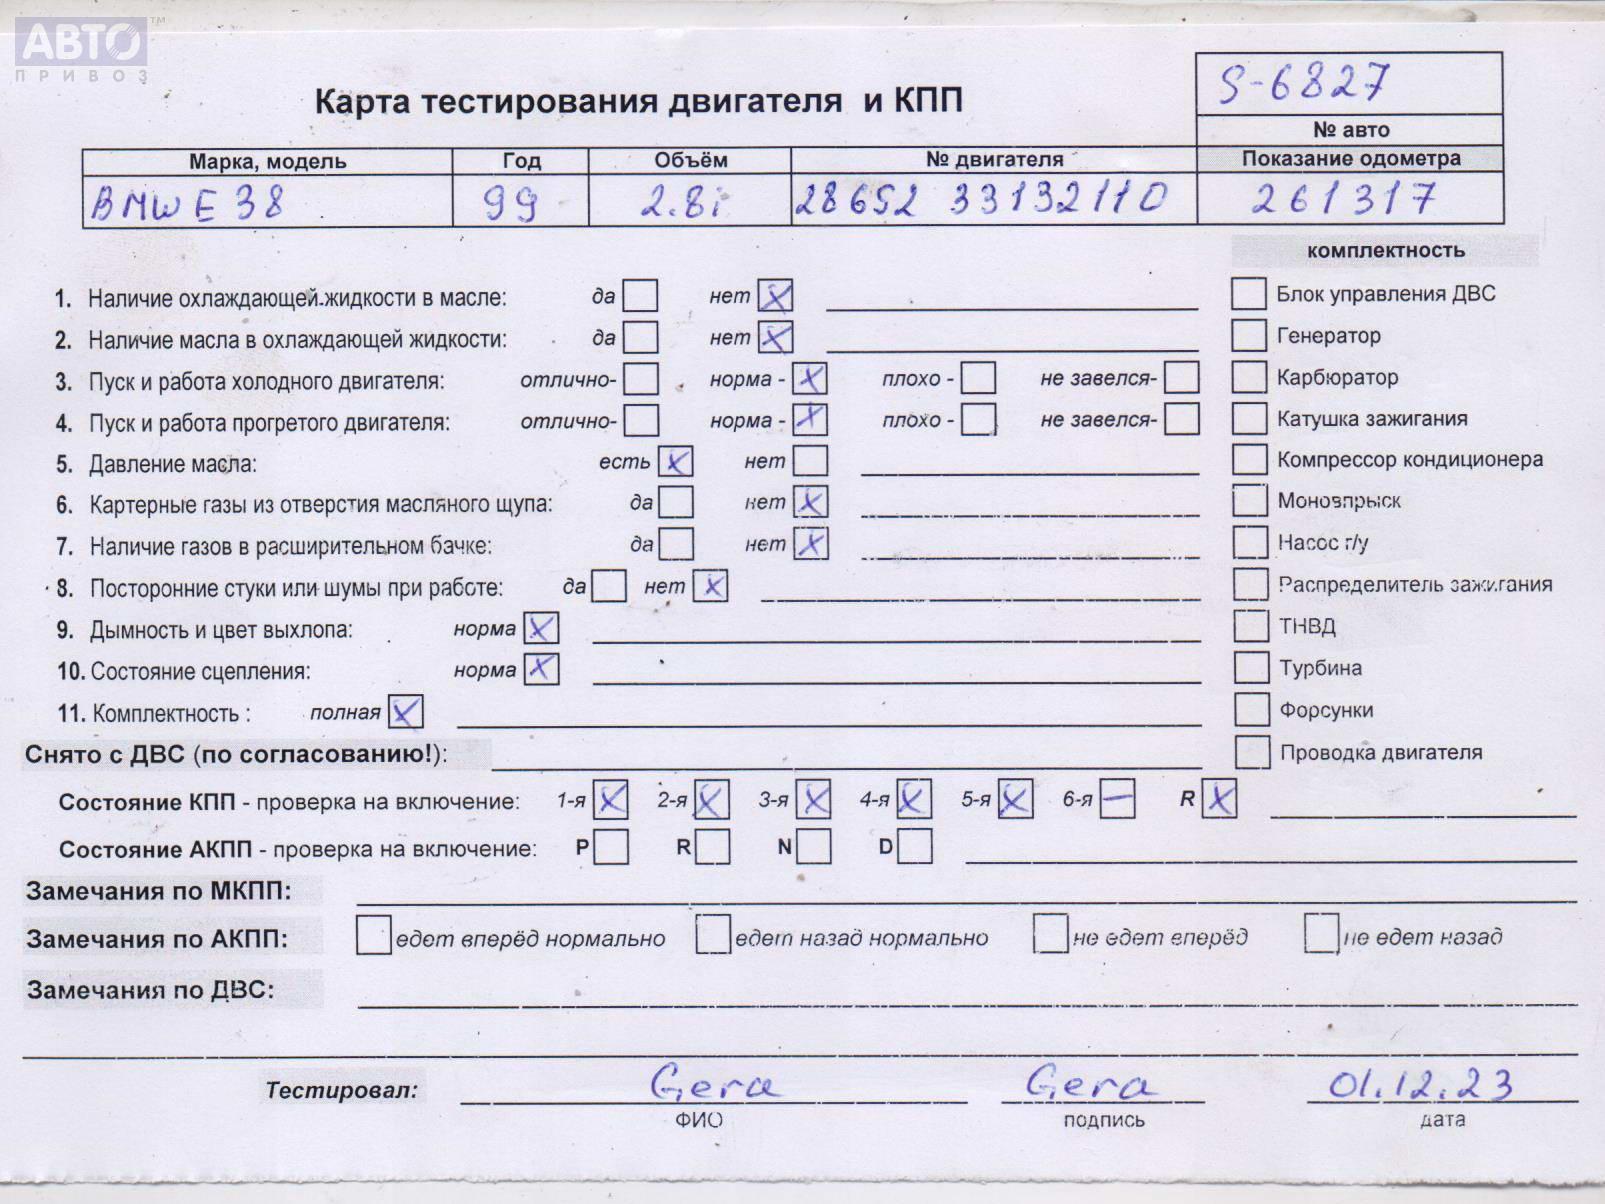 АВТО™
ПРИВОЗ
S-6827
Карта тестирования двигателя и КПП
№ авто
Марка, модель Год Объём № двигателя Показание одометра
BMW E 38 99 2.8i 286S2 33132110 261317
комплектность
1. Наличие охлаждающей жидкости в масле: да нет X Блок управления ДВС
2. Наличие масла в охлаждающей жидкости: да нет X Генератор
3. Пуск и работа холодного двигателя: отлично- норма - X плохо - не завелся- Карбюратор
4. Пуск и работа прогретого двигателя: отлично- норма - X плохо - не завелся- Катушка зажигания
5. Давление масла: есть X нет Компрессор кондиционера
6. Картерные газы из отверстия масляного щупа: да нет X Моновпрыск
7. Наличие газов в расширительном бачке: да нет X Насос г/у
8. Посторонние стуки или шумы при работе: да нет X Распределитель зажигания
9. Дымность и цвет выхлопа: норма X ТНВД
10. Состояние сцепления: норма X Турбина
11. Комплектность : полная X Форсунки
Снято с ДВС (по согласованию!): Проводка двигателя
Состояние КПП - проверка на включение: 1-я X 2-я X 3-я X 4-я X 5-я X 6-я — R X
Состояние АКПП - проверка на включение: P R N D
Замечания по МКПП:
Замечания по АКПП: едет вперёд нормально едет назад нормально не едет вперёд не едет назад
Замечания по ДВС:
Тестировал: Gera Gera 01.12.23
ФИО подпись дата